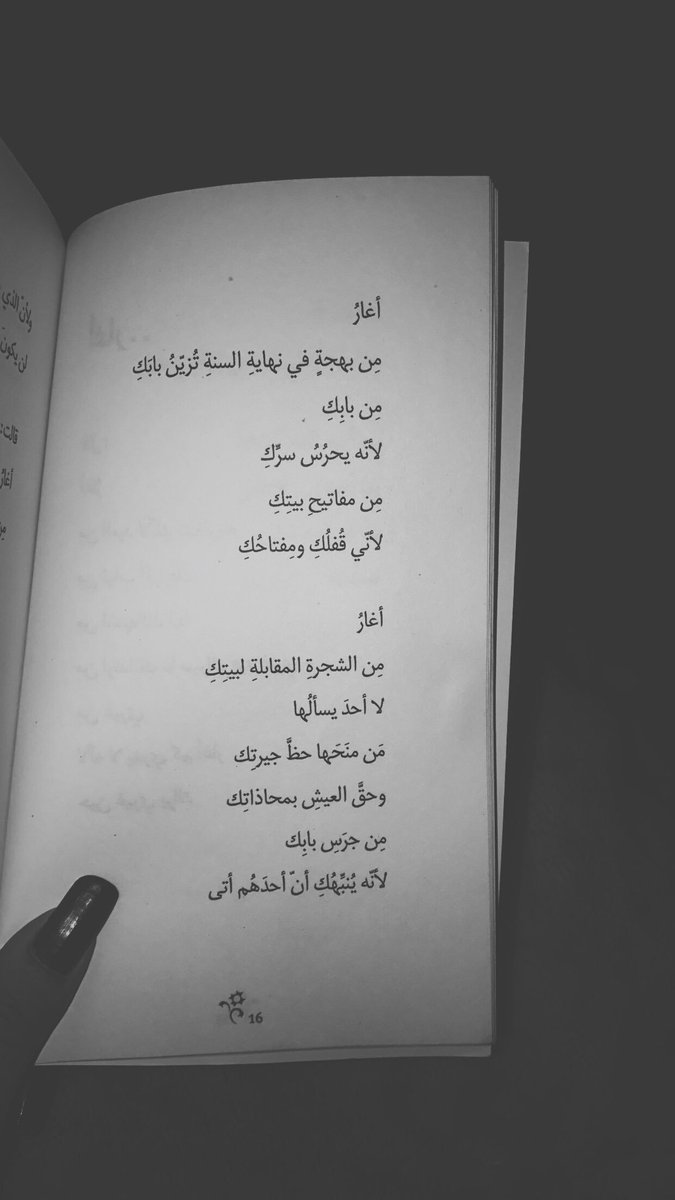 أغارُ
مِن بهجةٍ في نهايةِ السنةِ تُزيّنُ بابَكِ
مِن بابِكِ
لأنّه يحرُسُ سرَّكِ
مِن مفاتيحِ بيتِكِ
لأنّي قُفلُكِ ومِفتاحُكِ
أغارُ
مِن الشجرةِ المقابلةِ لبيتِكِ
لا أحدَ يسألُها
مَن منَحَها حظَّ جيرتِك
وحقَّ العيشِ بمحاذاتِك
مِن جرَسِ بابِك
لأنّه يُنبِّهُكِ أنّ أحدَهُم أتى
16
ولأنّ الذي
لن يكون
قالت: